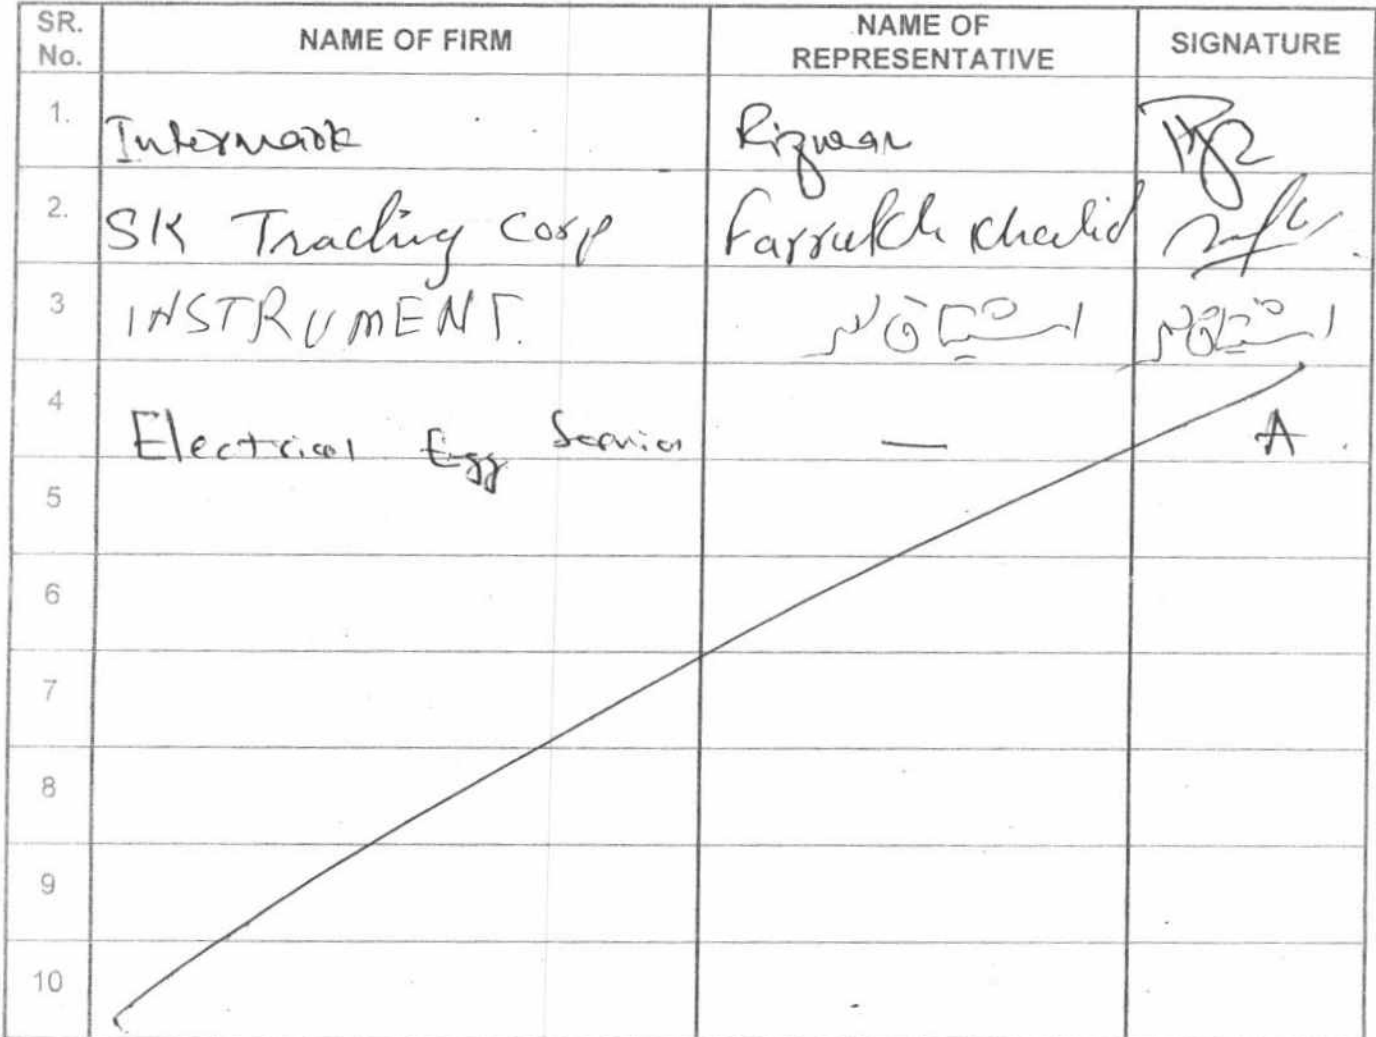 SR. No. NAME OF FIRM NAME OF REPRESENTATIVE SIGNATURE
1. Intermark Rizwan
2. SK Trading Corp Farrukh Khalid
3 INSTRUMENT.
4 Electrical Egg Service — A
5
6
7
8
9
10